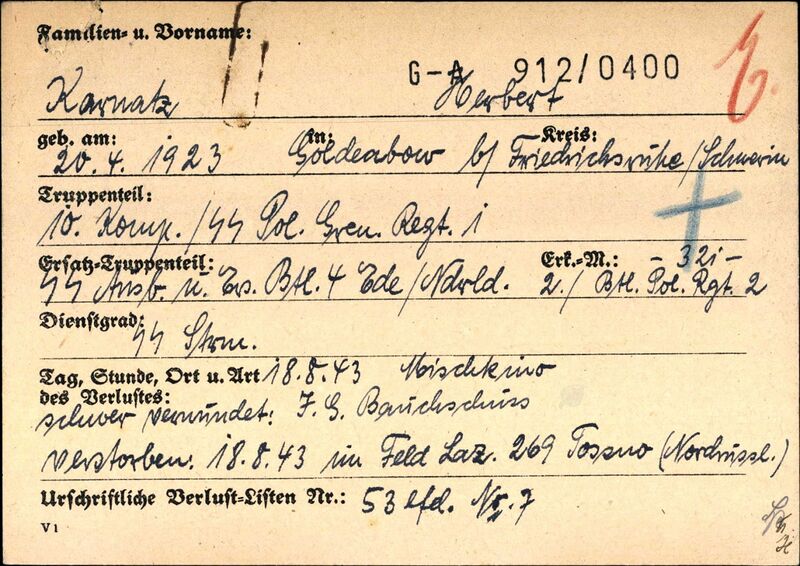 Familien- u. Vorname:
G-A 912/0400
Karnatz Herbert
geb. am: in: Kreis:
20.4.1923 Goldenbow b/ Friedrichsruhe/Schwerin
Truppenteil:
10. Komp./SS Pol. Gren. Regt. 1
Ersatz-Truppenteil: Erk.-M.: -321-
SS Ausb. u. Ers. Btl. 4 Ede/Ndrld. 2./ Btl. Pol. Rgt. 2
Dienstgrad:
SS Strm.
Tag, Stunde, Ort u. Art 18.8.43 Mischkino
des Verlustes:
schwer verwundet: I.G. Bauchschuss
verstorben: 18.8.43 im Feld Laz. 269 Tossno (Nordrussl.)
Urschriftliche Verlust-Listen Nr.: 53 lfd. Nr. 7
V1